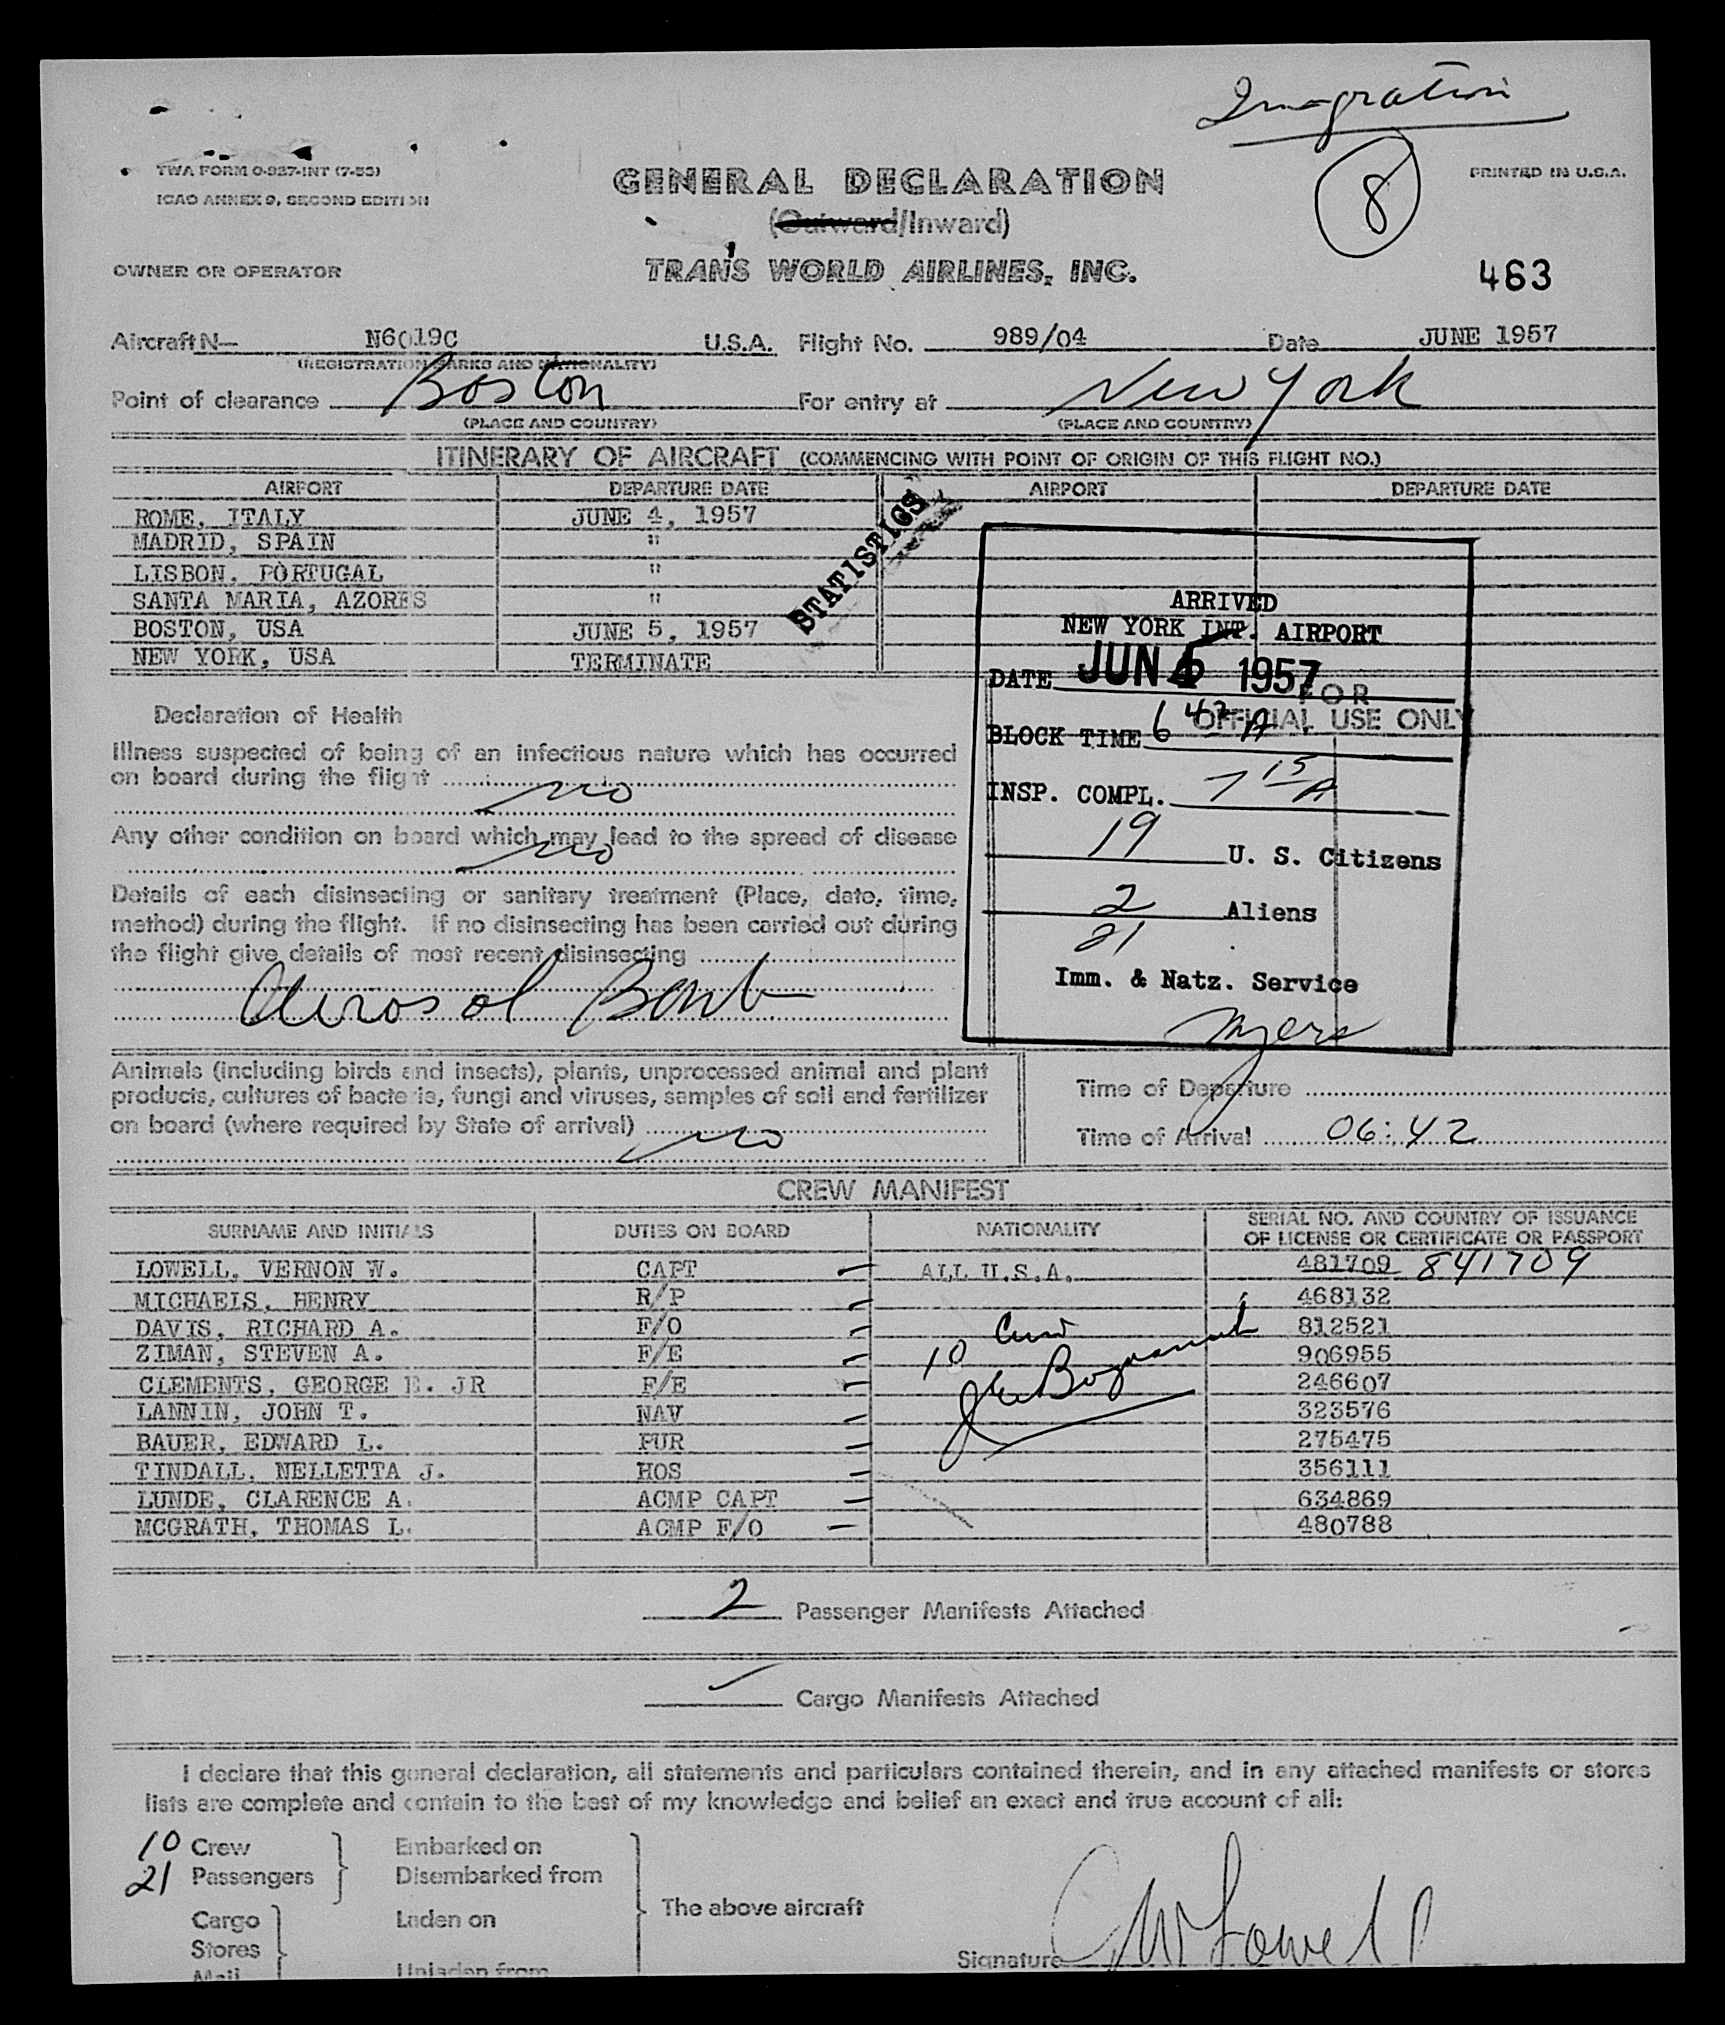 Imagration
8
TWA FORM 0-927-INT (7-53)
ICAO ANNEX 9, SECOND EDITION
GENERAL DECLARATION
PRINTED IN U.S.A.
(Outward/Inward)
OWNER OR OPERATOR
TRANS WORLD AIRLINES, INC.
463
Aircraft N— N6019C U.S.A. Flight No. 989/04 Date JUNE 1957
(REGISTRATION MARKS AND NATIONALITY)
Point of clearance Boston For entry at New York
(PLACE AND COUNTRY) (PLACE AND COUNTRY)
ITINERARY OF AIRCRAFT (COMMENCING WITH POINT OF ORIGIN OF THIS FLIGHT NO.)
AIRPORT DEPARTURE DATE AIRPORT DEPARTURE DATE
ROME, ITALY JUNE 4, 1957
MADRID, SPAIN "
LISBON, PORTUGAL "
SANTA MARIA, AZORES "
BOSTON, USA JUNE 5, 1957
NEW YORK, USA TERMINATE
STATISTICS
ARRIVED
NEW YORK INT. AIRPORT
DATE JUN 5 1957
FOR
OFFICIAL USE ONLY
BLOCK TIME 6 42 A
INSP. COMPL. 7 15 A
19 U. S. Citizens
2 Aliens
21
Imm. & Natz. Service
Myers
Declaration of Health
Illness suspected of being of an infectious nature which has occurred
on board during the flight
no
Any other condition on board which may lead to the spread of disease
no
Details of each disinsecting or sanitary treatment (Place, date, time,
method) during the flight. If no disinsecting has been carried out during
the flight give details of most recent disinsecting
Aerosol Bomb
Animals (including birds and insects), plants, unprocessed animal and plant
products, cultures of bacteria, fungi and viruses, samples of soil and fertilizer
on board (where required by State of arrival)
no
Time of Departure
Time of Arrival 06:42
CREW MANIFEST
SURNAME AND INITIALS DUTIES ON BOARD NATIONALITY SERIAL NO. AND COUNTRY OF ISSUANCE
OF LICENSE OR CERTIFICATE OR PASSPORT
LOWELL, VERNON W. CAPT ALL U.S.A. 481709 841709
MICHAELS, HENRY R/P 468132
DAVIS, RICHARD A. F/O 812521
ZIMAN, STEVEN A. F/E 906955
CLEMENTS, GEORGE E. JR F/E 246607
LANNIN, JOHN T. NAV 323576
BAUER, EDWARD L. PUR 275475
TINDALL, NELLETTA J. HOS 356111
LUNDE, CLARENCE A. ACMP CAPT 634869
MCGRATH, THOMAS L. ACMP F/O 480788
10 Crew
2 Passenger Manifests Attached
Cargo Manifests Attached
I declare that this general declaration, all statements and particulars contained therein, and in any attached manifests or stores
lists are complete and contain to the best of my knowledge and belief an exact and true account of all:
10 Crew Embarked on
21 Passengers Disembarked from
The above aircraft
Cargo Laden on
Stores
Mail Unladen from
Signature VW Lowell